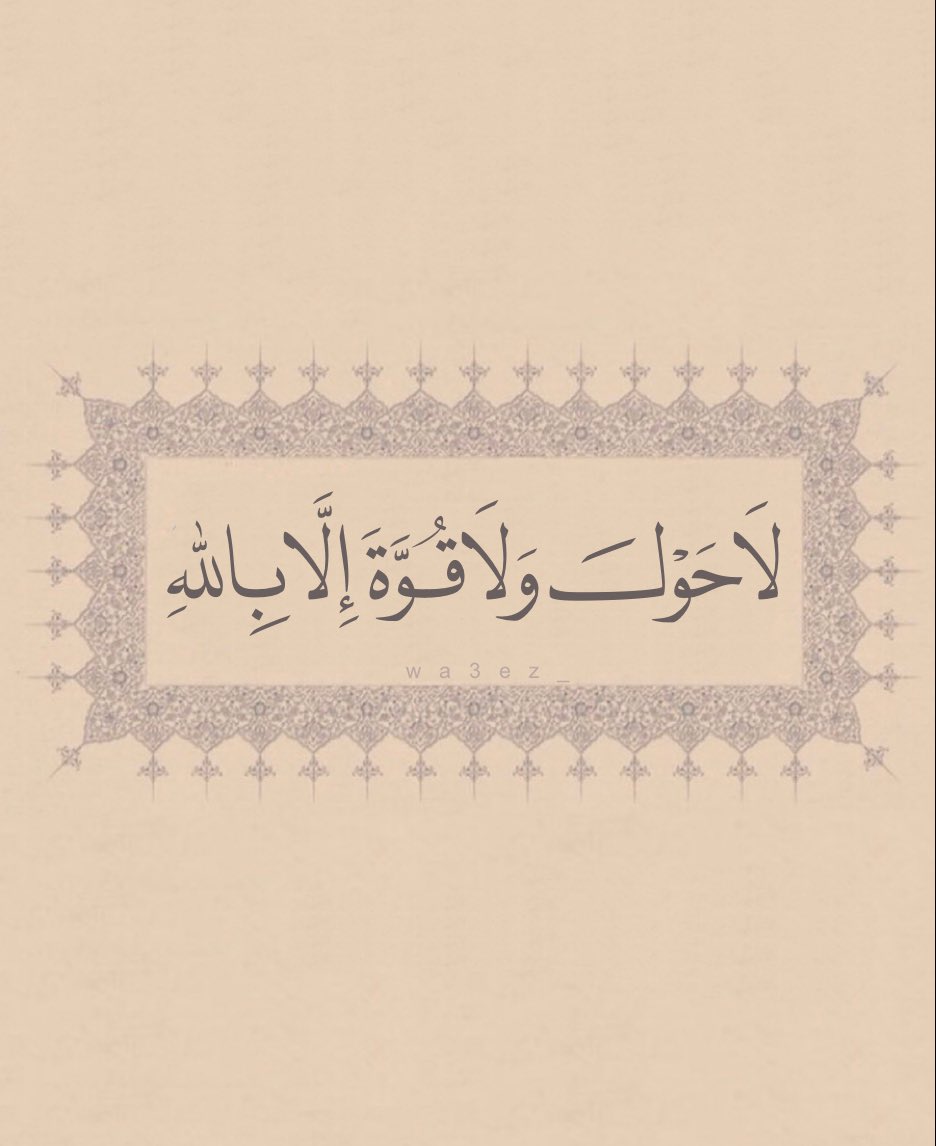 لَا حَوْلَ وَلَا قُوَّةَ إِلَّا بِاللهِ
wa3ez_